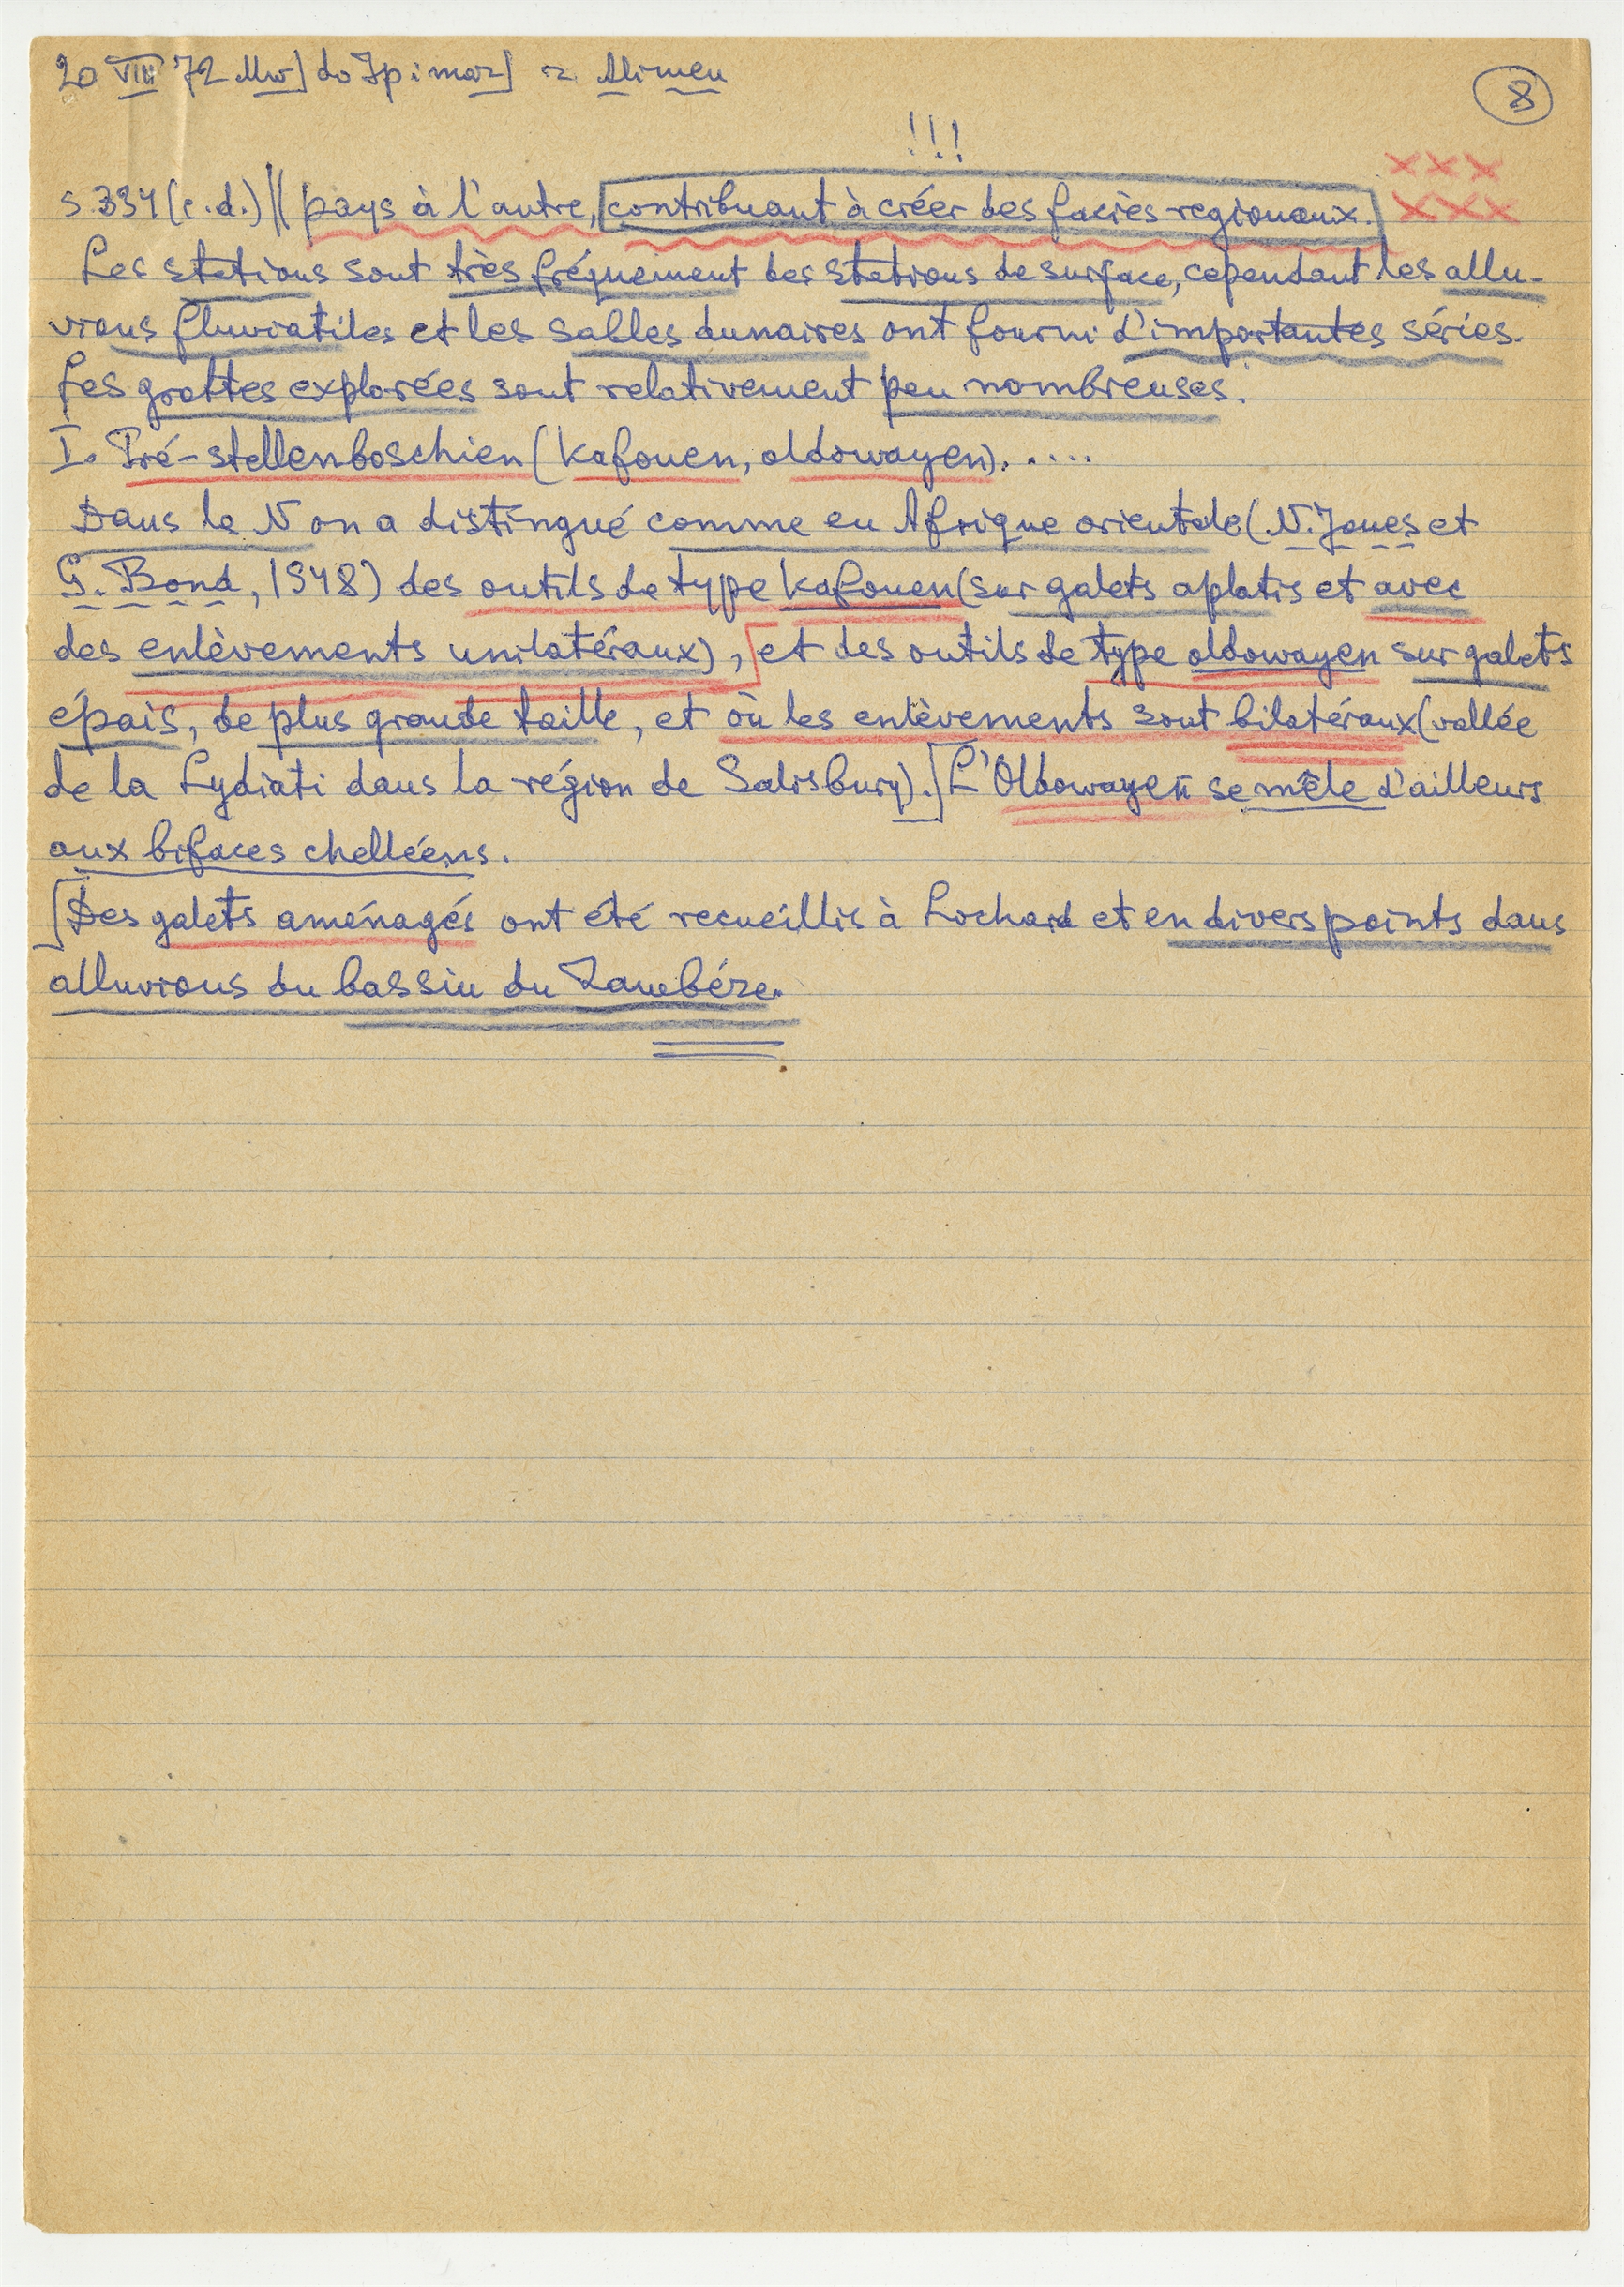 20 VIII 72 Mw] do Ip i maz] z Alimen
8
!!!
xxx
xxx
s. 334 (c.d.) || pays à l'autre, contribuant à créer des faciès regionaux.
Les stations sont très fréquement des stations de surface, cependant les allu-
vions fluviatiles et les sables dunaires ont fourni d'importantes séries.
Les grottes explorées sont relativement peu nombreuses.
I. Pré-stellenboschien (Kafouen, oldowayen).....
Dans le N on a distingué comme en Afrique orientale (N. Jones et
G. Bond, 1948) des outils de type Kafouen (sur galets aplatis et avec
des enlèvements unilatéraux), [et des outils de type oldowayen sur galets
épais, de plus grande taille, et où les enlèvements sont bilatéraux (vallée
de la Lydiati dans la région de Salisbury).] L'Oldowayen se mêle d'ailleurs
aux bifaces chelléens.
[Des galets aménagés ont été recueillis à Lochard et en divers points dans
alluvions du bassin du Zambéze.